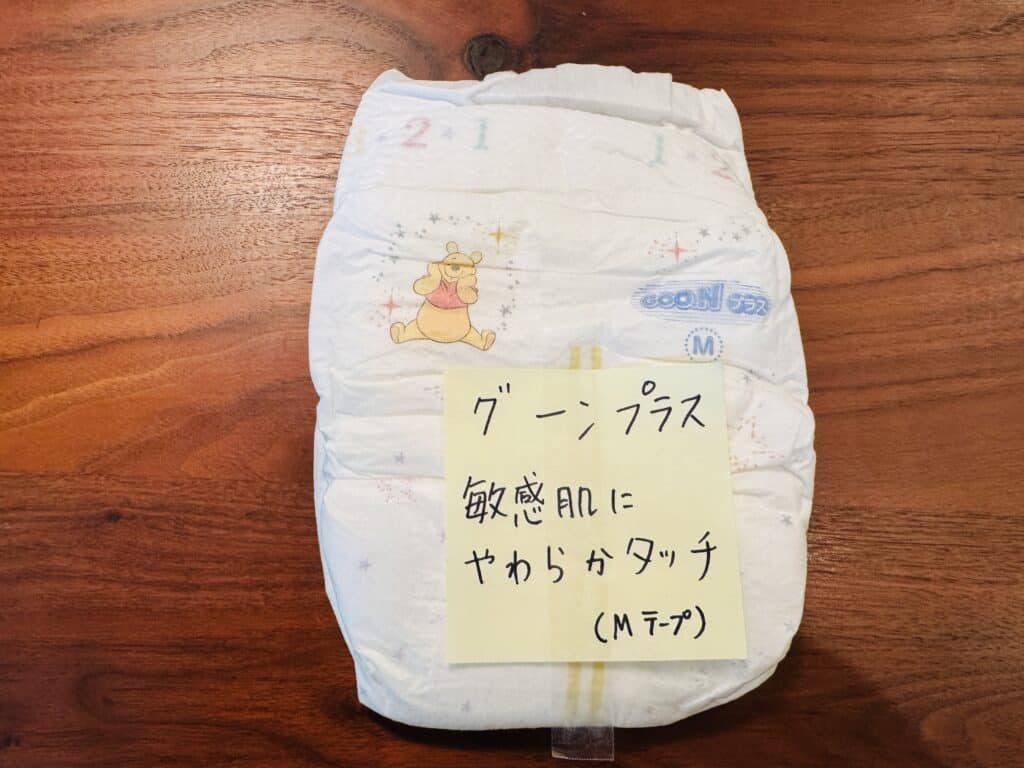 3 2 1 1 2
GOO.N プラス
M
グーンプラス
敏感肌に
やわらかタッチ
(Mテープ)